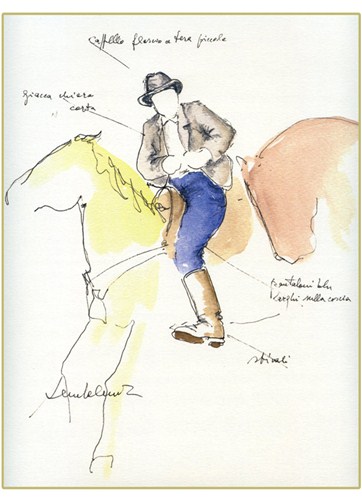 cappello floscio a tesa piccola
giacca chiara
corta
pantaloni blu
larghi sulla coscia
stivali